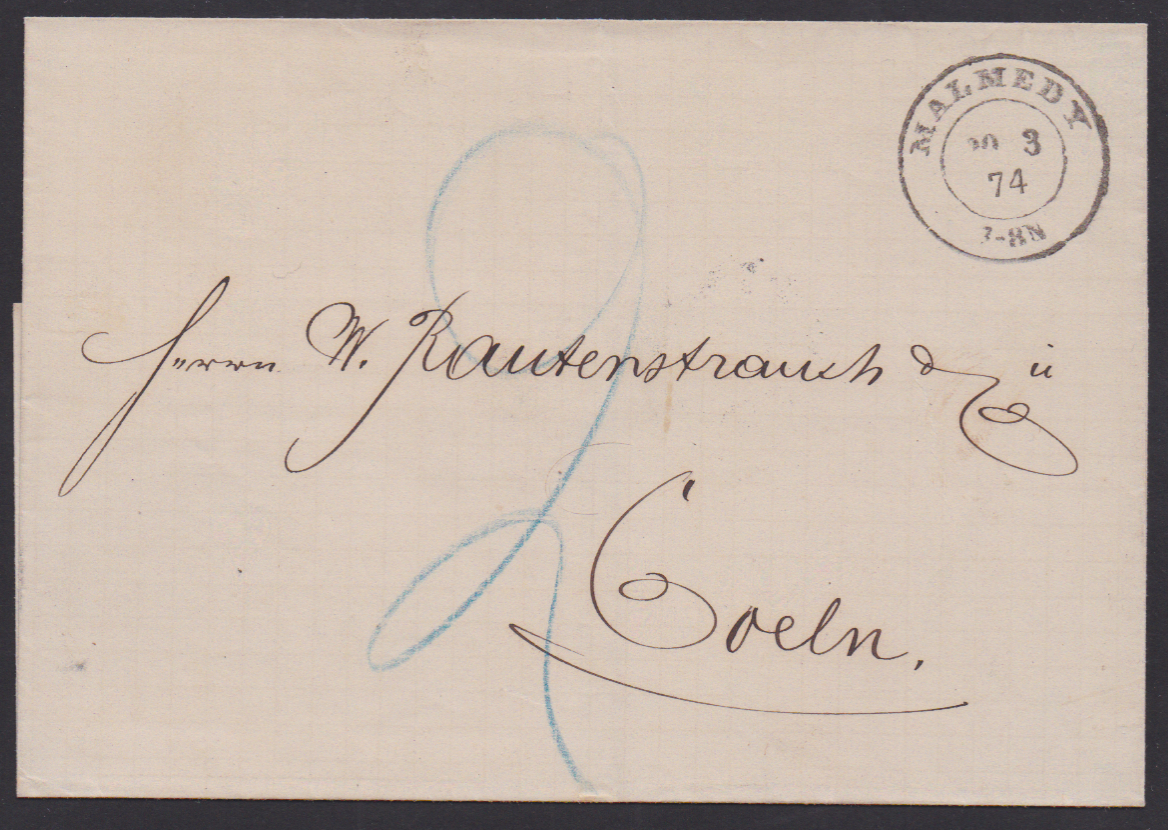 MALMEDY
3
74
-8N
2
Herrn W. Rautenstrauch
Coeln.